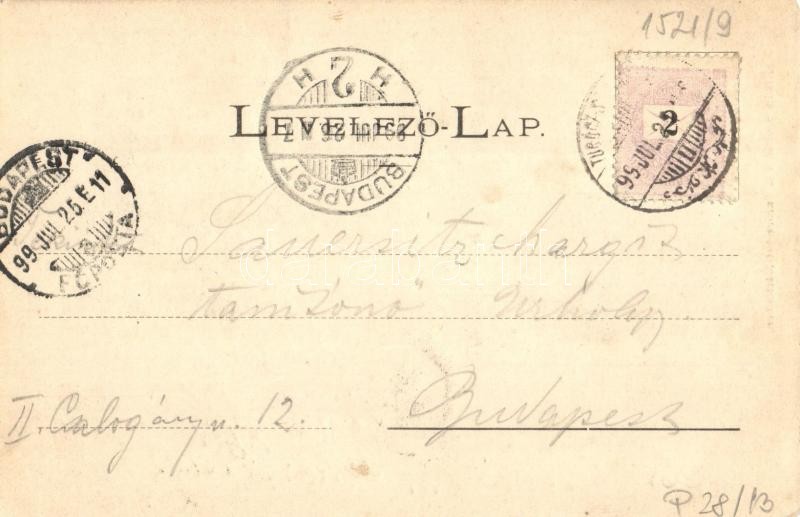 1521/9
LEVELEZŐ-LAP.
2
BUDAPEST
H 2 H
BUDAPEST
99 JUL. 25. É 11
FŐPOSTA
Sauersitz Margit
tanítónő
II. Csalogány u. 12.
Budapest
P 28/B